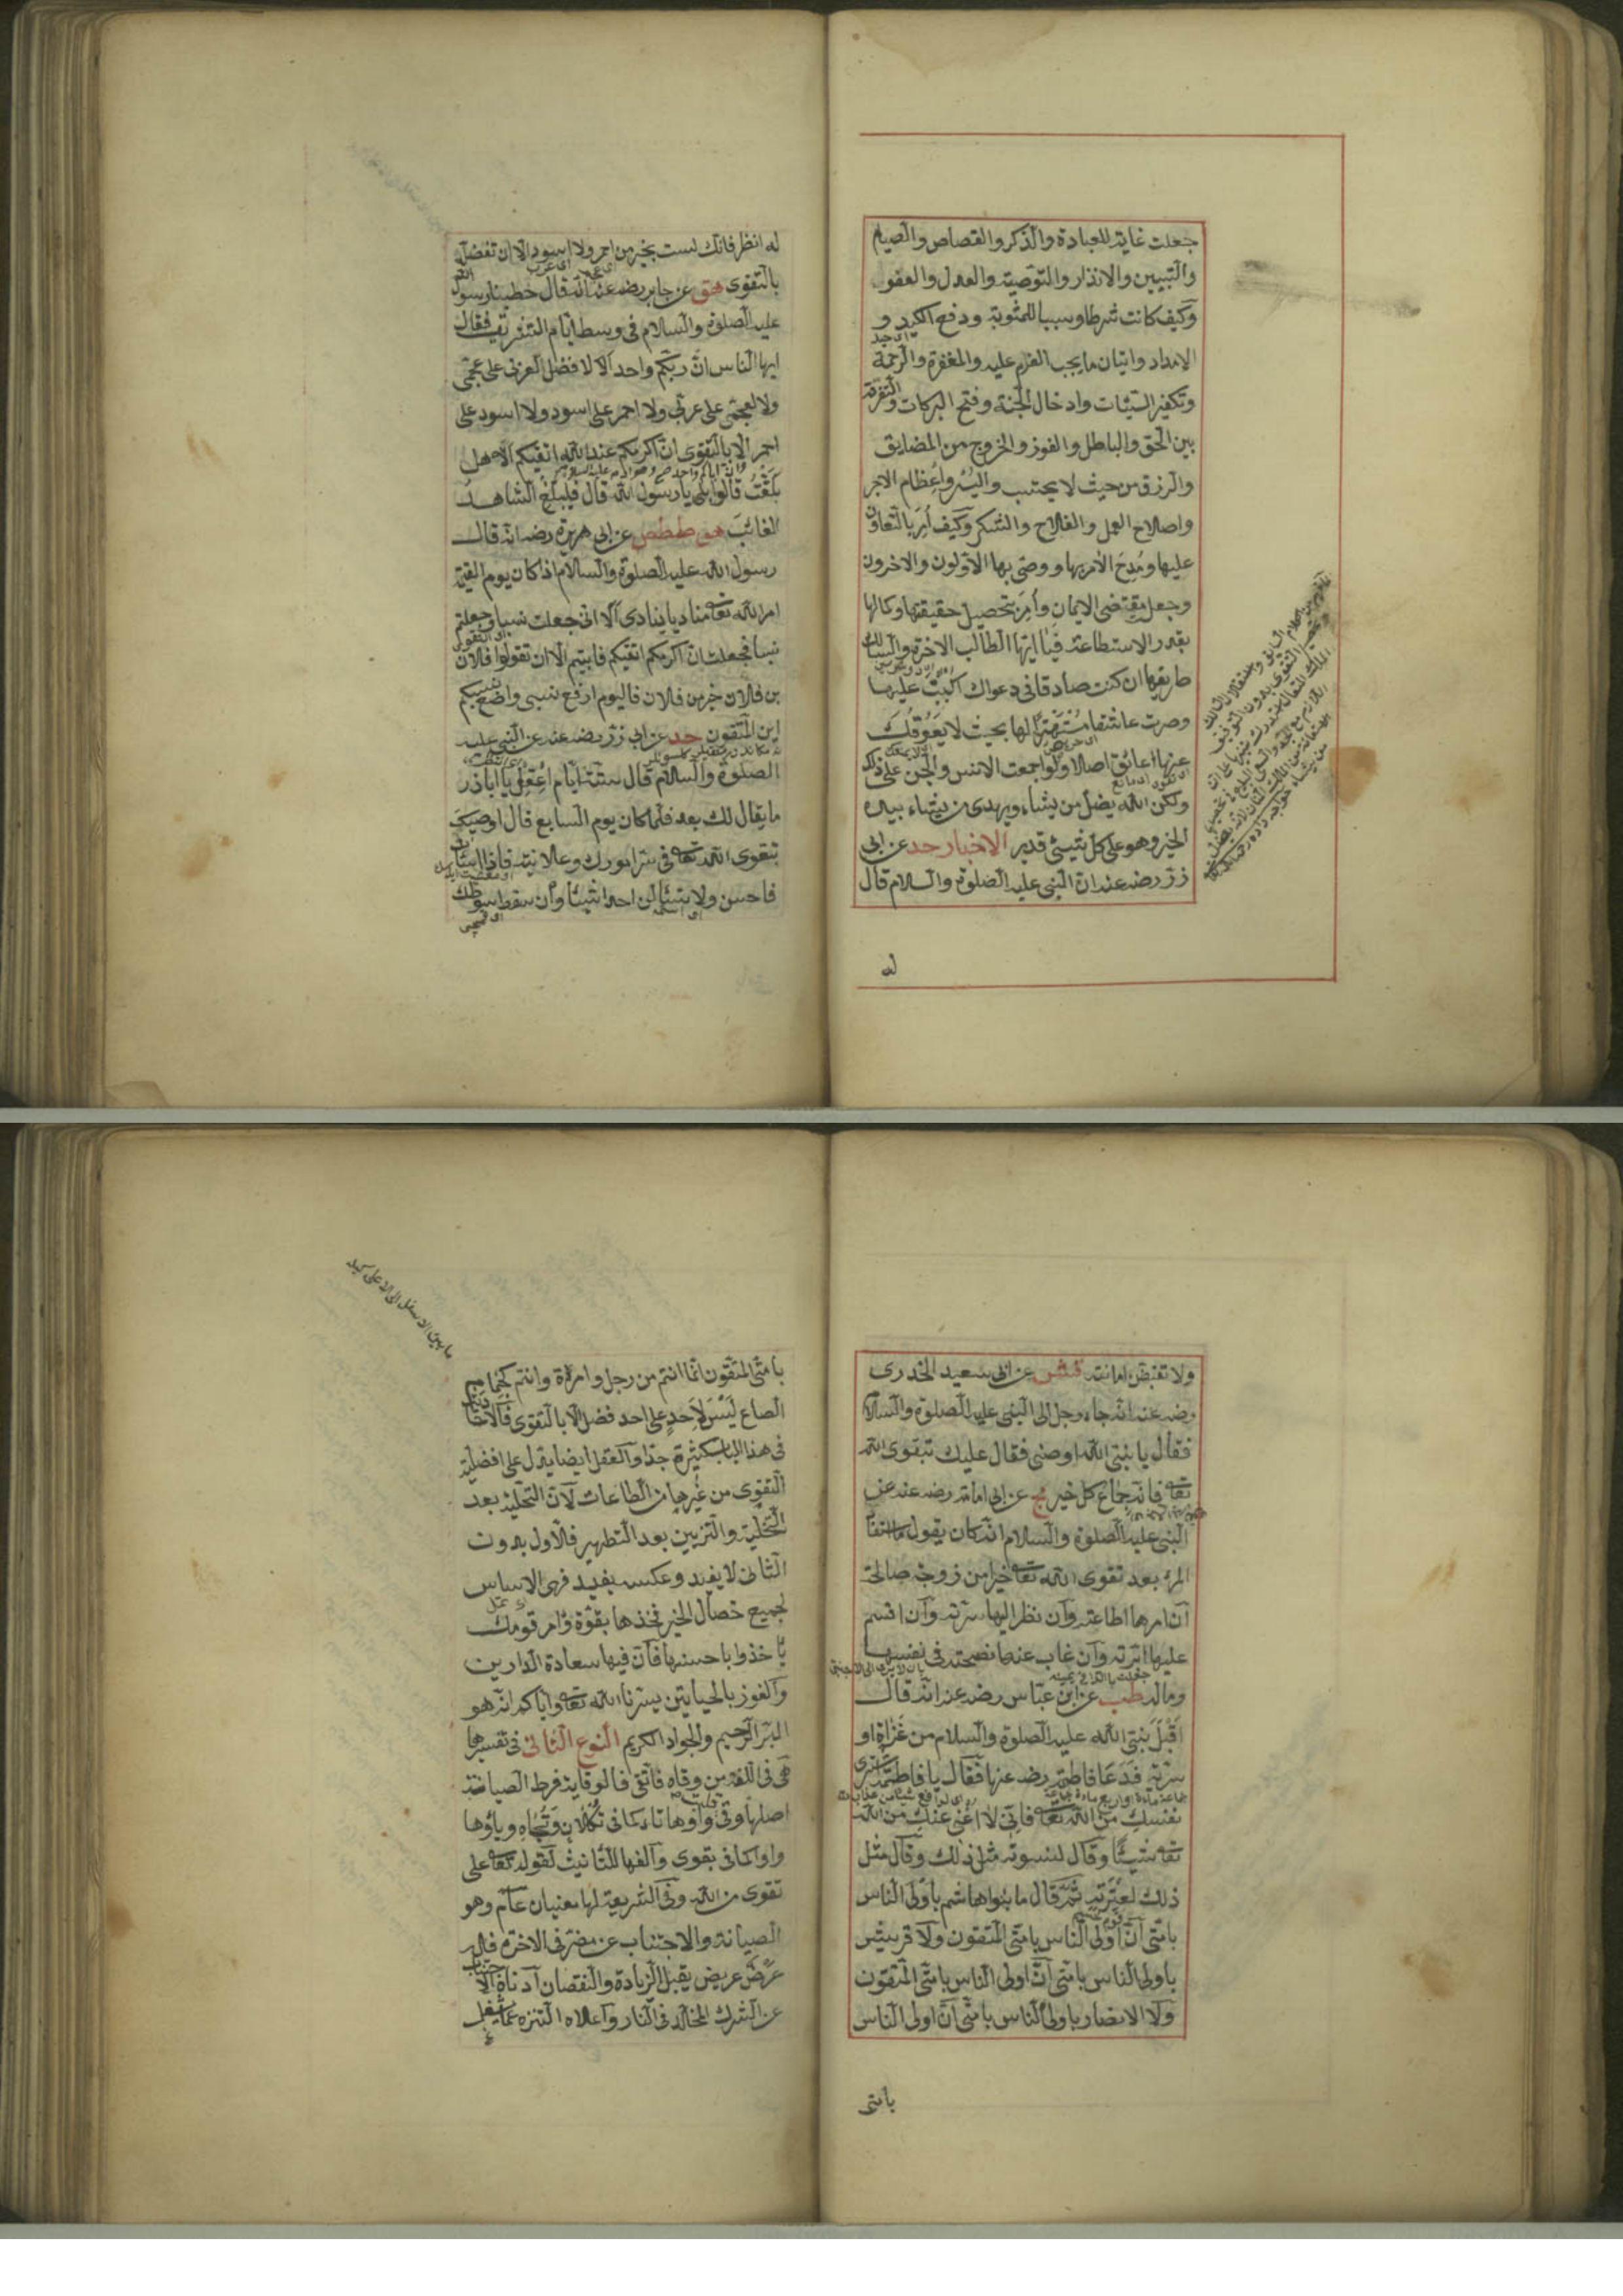 جعلت غاية للعبادة والذكر والقصاص والصيام
والتبيين والانذار والتوصية والعدل والعفو
وكيف كانت شرطا وسببا للمثوبة ودفع الكيد و
الامداد واتيان ما يجب العزم عليه والمغفرة والرحمة
وتكفير السيئات وادخال الجنة وفتح البركات والتفرقة
بين الحق والباطل والفوز والخروج من المضايق
والرزق من حيث لا يحتسب واليسر واعظام الاجر
واصلاح العمل والفلاح والشكر وكيف امر بالتعاون
عليها ومدح الآمر بها ووصى بها الاولون والآخرون
وجعل مقتضى الايمان وامر بتحصيل حقيقتها وكمالها
بقدر الاستطاعة فيا ايها الطالب الآخرة والسالك
طريقها ان كنت صادقا في دعواك اكببت عليها
وصرت عاشقا مستهترا لها بحيث لا يعوقك
عنها عائق اصلا ولو اجمعت الانس والجن على ذلك
ولكن الله يضل من يشاء ويهدي من يشاء بيده
الخير وهو على كل شيء قدير الاخبار حد عن ابي
ذر رضه عنه ان النبي عليه الصلوة والسلام قال
له
له انظر فانك لست بخير من احمر ولا اسود الا ان تفضل
بالتقوى هق عن جابر رضه عنه انه قال خطبنا رسول الله
عليه الصلوة والسلام في وسط ايام التشريق فقال
ايها الناس ان ربكم واحد الا لا فضل لعربي على عجمي
ولا لعجمي على عربي ولا احمر على اسود ولا اسود على
احمر الا بالتقوى ان اكرمكم عند الله اتقيكم الا هل
بلغت قالوا بلى يا رسول الله قال فليبلغ الشاهد
الغائب هق طط ص عن ابي هريرة رضه انه قال
رسول الله عليه الصلوة والسلام اذا كان يوم القيمة
امر الله تعا مناديا ينادي الا اني جعلت نسبا وجعلتم
نسبا فجعلت ان اكرمكم اتقيكم فابيتم الا ان تقولوا فلان
بن فلان خير من فلان فاليوم ارفع نسبي واضع نسبكم
اين المتقون حد عن ابي ذر رضه عنه عن النبي عليه
الصلوة والسلام قال ستة ايام اعقل يا اباذر
ما يقال لك بعد فلما كان يوم السابع قال اوصيك
بتقوى الله تعا في سر امورك وعلانيته فاذا اسأت
فاحسن ولا تسئالن احدا شيئا وان سقط سوطك
ولا تقبض امانة شش عن ابي سعيد الخدري
رضه عنه انه جاء رجل الى النبي عليه الصلوة والسلام
فقال يا نبي الله اوصني فقال عليك بتقوى الله
تعا فانه جماع كل خير مج عن ابي امامة رضه عنه عن
النبي عليه الصلوة والسلام انه كان يقول ما استفاد
المرء بعد تقوى الله تعا خيرا من زوجة صالحة
ان امرها اطاعته وان نظر اليها سرته وان اقسم
عليها ابرته وان غاب عنها نصحته في نفسها
وماله طب عن ابن عباس رضه عنه انه قال
اقبل نبي الله عليه الصلوة والسلام من غزاة او
سرية فدعا فاطمة رضه عنها فقال يا فاطمة اشتري
نفسك من الله تعا فاني لا اغني عنك من الله
تعا شيئا وقال لنسوته مثل ذلك وقال مثل
ذلك لعترته ثم قال ما بنوا هاشم باولى الناس
بامتي ان اولى الناس بامتي المتقون ولا قريش
باولى الناس بامتي ان اولى الناس بامتي المتقون
ولا الانصار باولى الناس بامتي ان اولى الناس
بامتي
ما بين الاسفل الى الاعلى كيد
بامتي المتقون انما انتم من رجل وامرأة وانتم كجمام
الصاع ليس لاحد على احد فضل الا بالتقوى فالآيات
في هذا الباب كثيرة جدا والعقل ايضا يدل على افضلية
التقوى من غيرها من الطاعات لان التحلية بعد
التخلية والتزيين بعد التطهير فالاول بدون
الثاني لا يفيد وعكسه يفيد فهي الاساس
لجميع خصال الخير فخذها بقوة وامر قومك
ياخذوا باحسنها فان فيها سعادة الدارين
والفوز بالحياتين يسرنا الله تعا واياكم انه هو
البر الرحيم والجواد الكريم النوع الثاني في تفسيرها
هي في اللغة من وقاه فاتقى فالوقاية فرط الصيانة
اصلها وقى واوها تاء كما في تكلان وتجاه وياؤها
واوا كما في بقوى والفها للتانيث لقوله تعا على
تقوى من الله وفي الشريعة لها معنيان عام وهو
الصيانة والاجتناب عن مضر في الآخرة فله
عرض عريض يقبل الزيادة والنقصان ادناه الاجتناب
عن الشرك المخلد في النار واعلاه التنزه عما يشغل